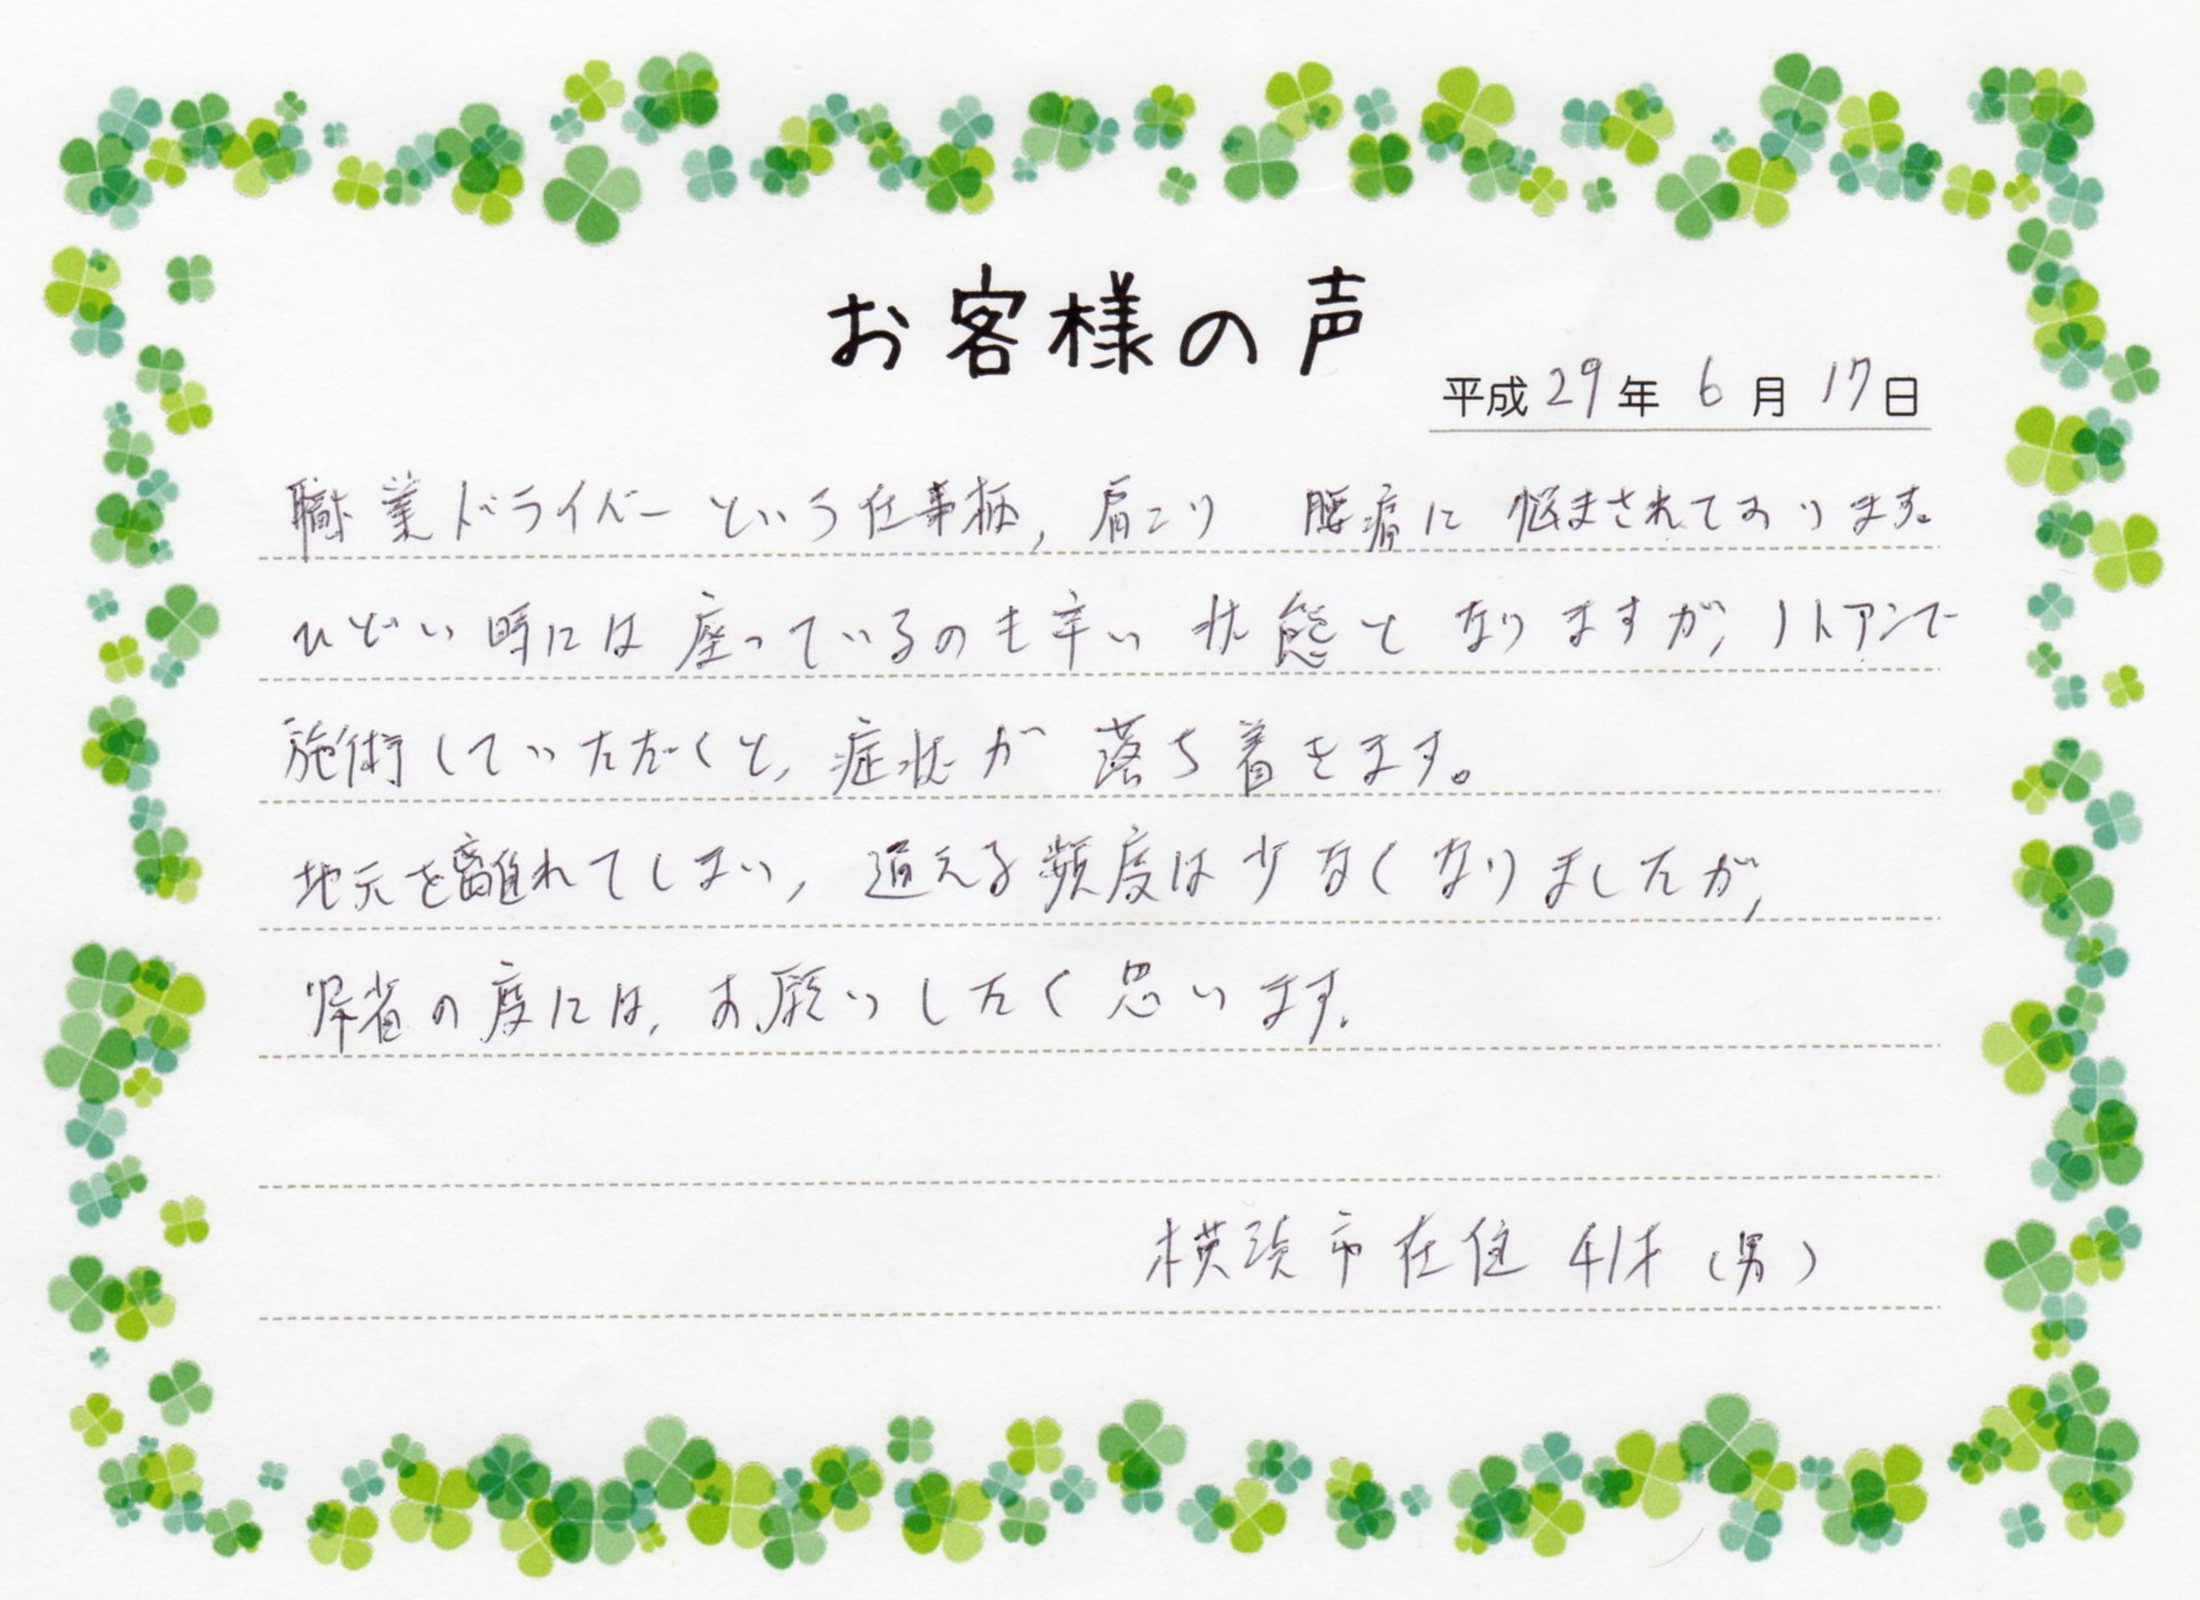 お客様の声
平成29年 6月 17日
職業ドライバーという仕事柄,肩こり 腰痛に 悩まされております。
ひどい時には座っているのも辛い 状態と なりますが,ノトアンで
施術していただくと,症状が 落ち着きます。
地元を離れてしまい,通える頻度は少なくなりましたが,
帰省の度には,お願いしたく思います.
横浜市在住 41才 (男)